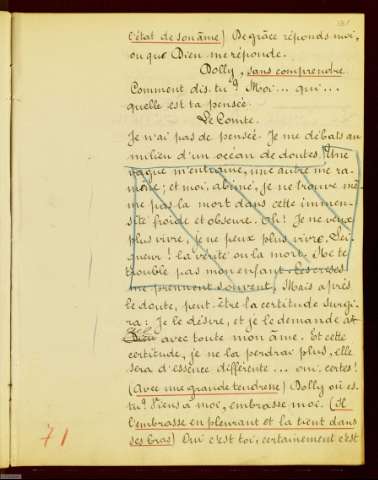 l'état de son âme) De grâce réponds moi,
ou que Dieu me réponde.
Dolly, sans comprendre
Comment dis. tu? Moi... qui...
quelle est ta pensée.
Le Comte.
Je n'ai pas de pensée. Je me débats au
milieu d'un océan de doutes. Une
vague m'entraine, une autre me ra-
mène; et moi, abimé, je ne trouve mê-
me pas la mort dans cette immen-
sité froide et obscure. Ah! Je ne veux
plus vivre, je ne peux plus vivre. Sei-
gneur! la vérité ou la mort. Ne te
trouble pas mon enfant. Ces crises
me prennent souvent. Mais après
le doute, peut-être la certitude surgi-
ra: Je le désire, et je le demande à
Dieu avec toute mon âme. Et cette
certitude, je ne la perdrai plus, elle
sera d'essence différente... oui, certes!
(Avec une grande tendresse) Dolly où es.
tu? Viens à moi, embrasse moi. (il
l'embrasse en pleurant et la tient dans
ses bras) Oui c'est toi, certainement c'est
71